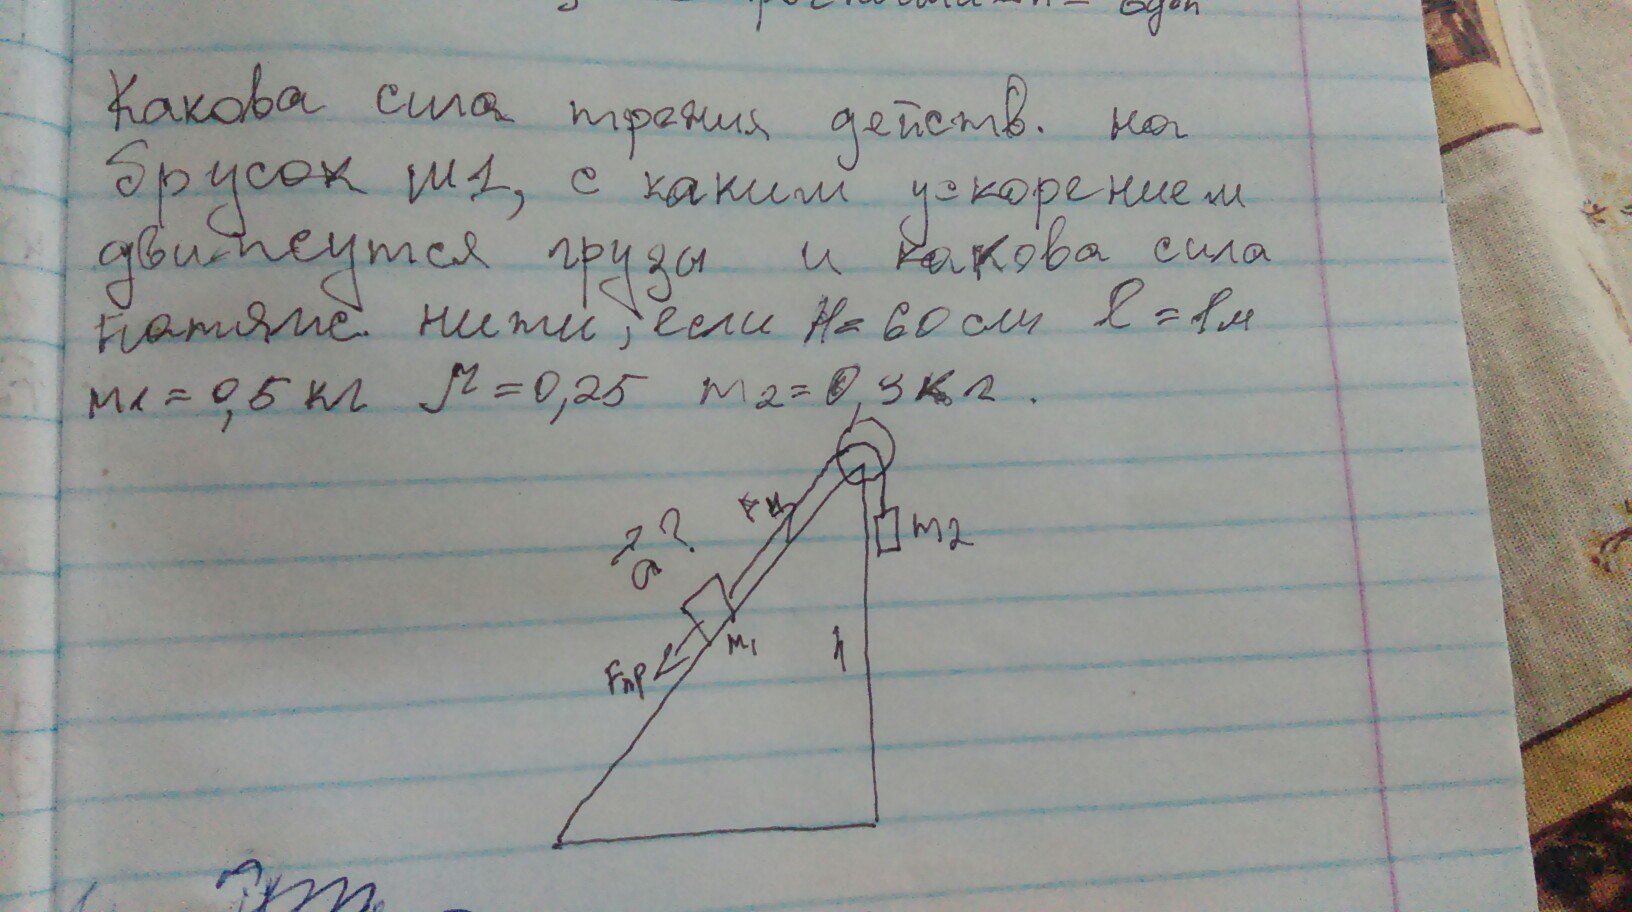 Какова сила трения действ. на
брусок m1, с каким ускорением
движутся грузы и какова сила
натяж. нити, если H=60см l=1м
m1=0,5 кг μ=0,25 m2=0,9кг.
Fн
m2
a?
m1
h
Fтр